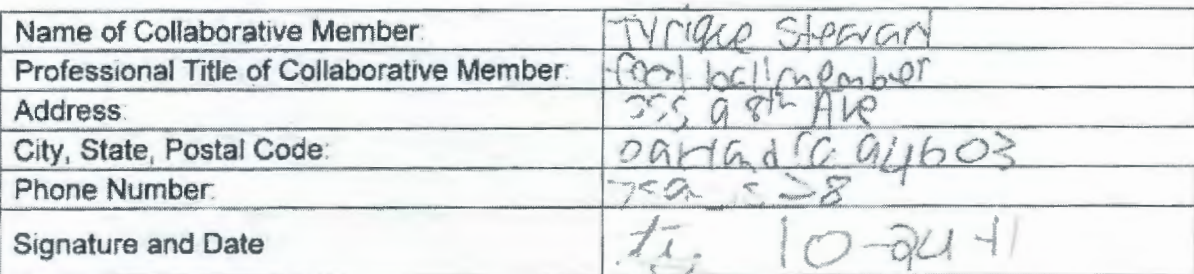 Name of Collaborative Member: Tyrique Stewart
Professional Title of Collaborative Member: foot ball member
Address: 98th Ave
City, State, Postal Code: Oakland CA 94603
Phone Number:
Signature and Date 10-24-11